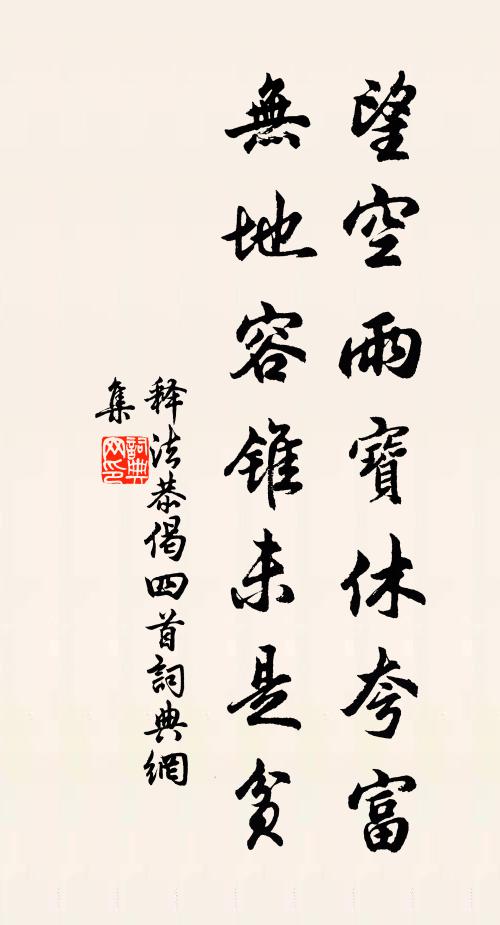 望空雨寶休夸富
無地容錐未是貧
释法恭偈四首詞典網
集
詞典
网印